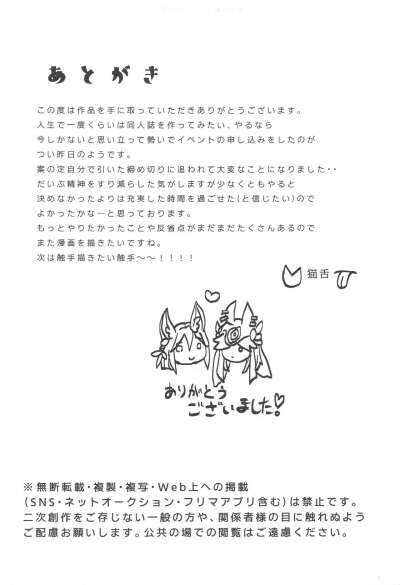 あとがき
この度は作品を手に取っていただきありがとうございます。
人生で一度くらいは同人誌を作ってみたい、やるなら
今しかないと思い立って勢いでイベントの申し込みをしたのが
つい昨日のようです。
案の定自分で引いた締め切りに追われて大変なことになりました・・
だいぶ精神をすり減らした気がしますが少なくともやると
決めなかったよりは充実した時間を過ごせた(と信じたい)ので
よかったかなーと思っております。
もっとやりたかったことや反省点がまだまだたくさんあるので
また漫画を描きたいですね。
次は触手描きたい触手〜〜!!!!
猫舌
ありがとう
ございました!
※無断転載・複製・複写・Web上への掲載
(SNS・ネットオークション・フリマアプリ含む)は禁止です。
二次創作をご存じない一般の方や、関係者様の目に触れぬよう
ご配慮お願いします。公共の場での閲覧はご遠慮ください。